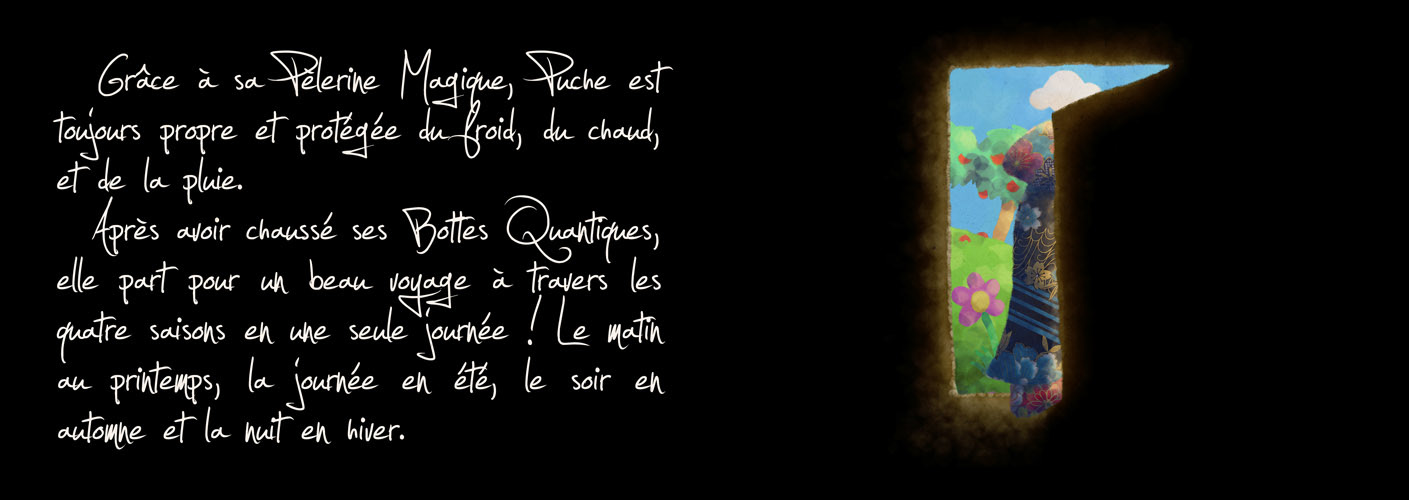 Grâce à sa Pèlerine Magique, Puche est
toujours propre et protégée du froid, du chaud,
et de la pluie.
Après avoir chaussé ses Bottes Quantiques,
elle part pour un beau voyage à travers les
quatre saisons en une seule journée ! Le matin
au printemps, la journée en été, le soir en
automne et la nuit en hiver.